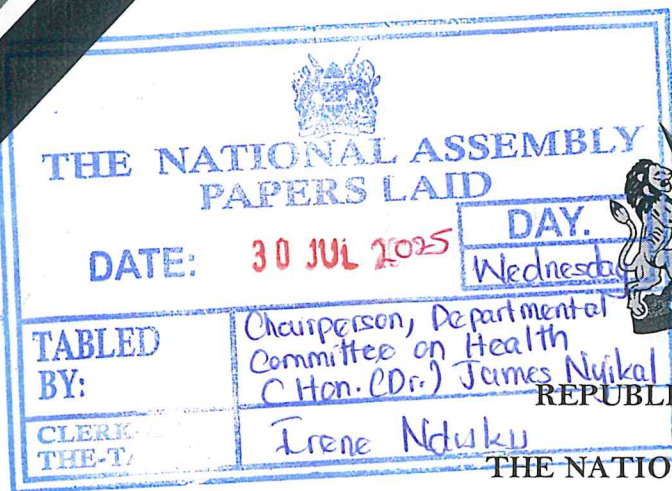 THE NATIONAL ASSEMBLY
PAPERS LAID
DATE: 30 JUL 2025
DAY.
Wednesday
TABLED BY:
Chairperson, Departmental
Committee on Health
(Hon. (Dr.) James Nyikal
CLERK
THE-TA
Irene Nduku
REPUBL
THE NATIO